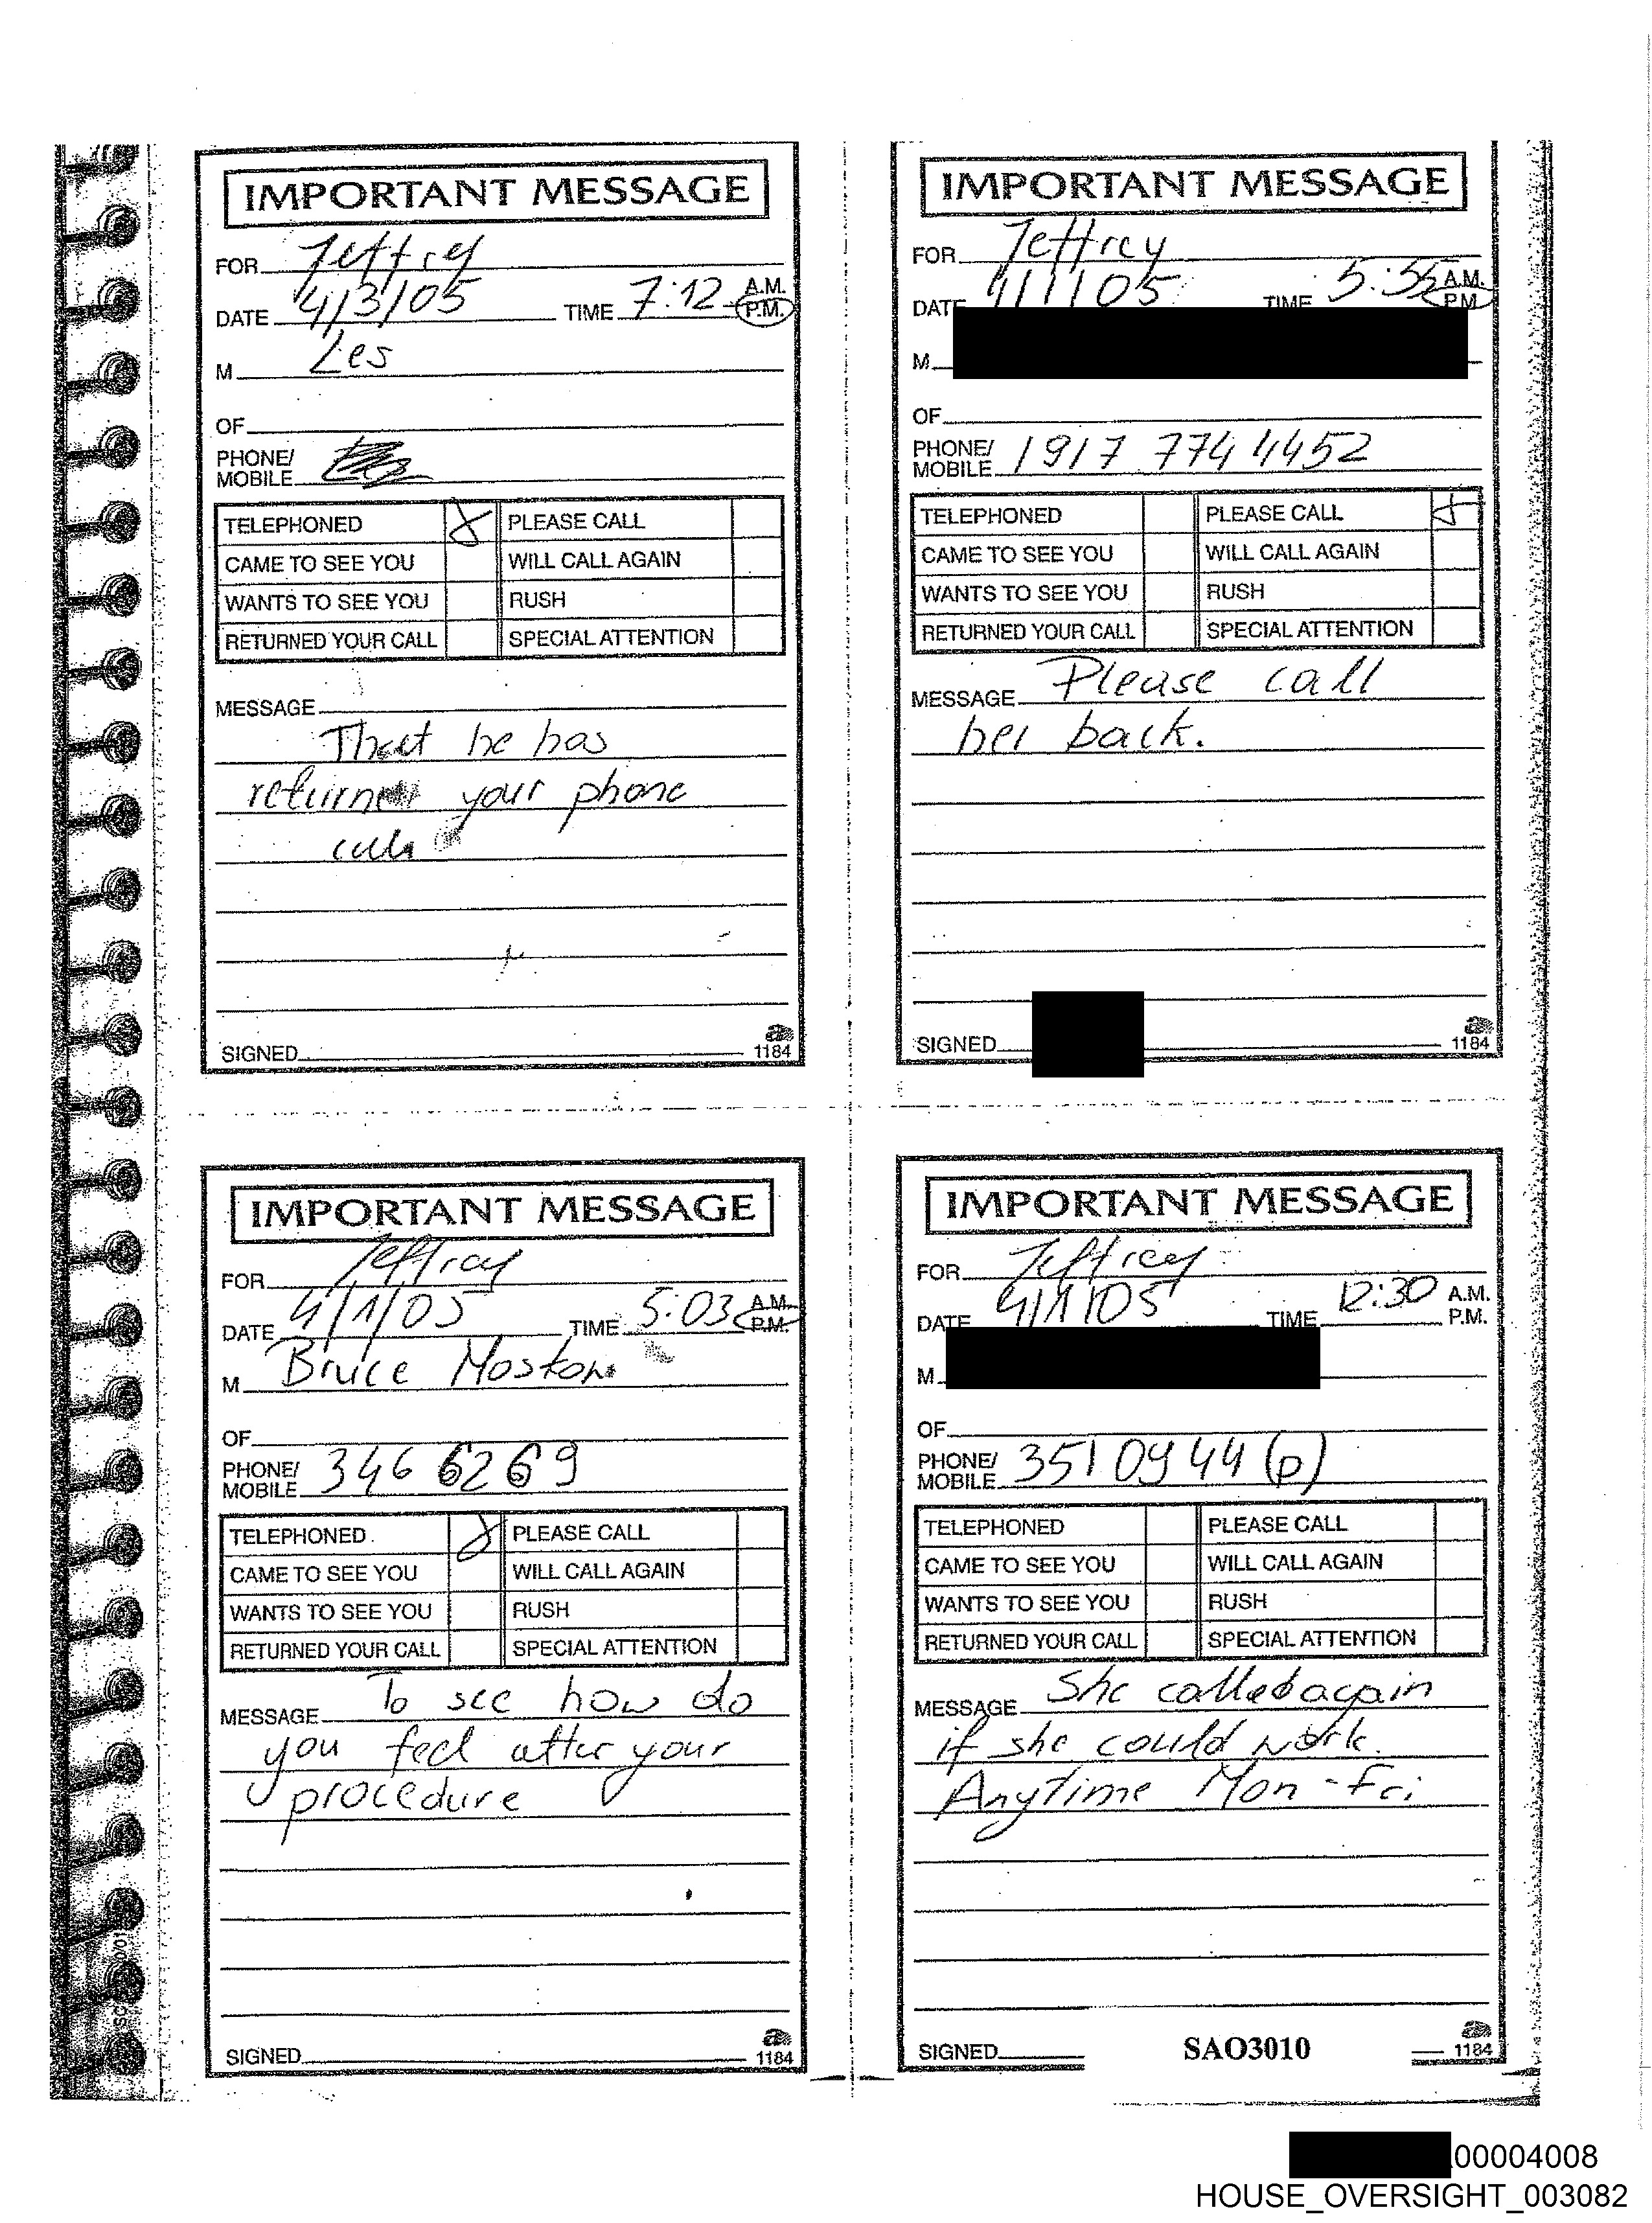 IMPORTANT MESSAGE
FOR Jeffrey
DATE 4/3/05 TIME 7:12 A.M. P.M.
M Les
OF
PHONE/
MOBILE
TELEPHONED PLEASE CALL
CAME TO SEE YOU WILL CALL AGAIN
WANTS TO SEE YOU RUSH
RETURNED YOUR CALL SPECIAL ATTENTION
MESSAGE
That he has
returned your phone
SIGNED
a
1184
IMPORTANT MESSAGE
FOR Jeffrey
DATE 4/1/05 TIME 5:35 A.M. P.M.
M
OF
PHONE/
MOBILE 1917 774 4452
TELEPHONED PLEASE CALL
CAME TO SEE YOU WILL CALL AGAIN
WANTS TO SEE YOU RUSH
RETURNED YOUR CALL SPECIAL ATTENTION
MESSAGE Please call
her back.
SIGNED
a
1184
IMPORTANT MESSAGE
FOR Jeffrey
DATE 4/1/05 TIME 5:03 A.M. P.M.
M Bruce
OF
PHONE/
MOBILE 346 6269
TELEPHONED PLEASE CALL
CAME TO SEE YOU WILL CALL AGAIN
WANTS TO SEE YOU RUSH
RETURNED YOUR CALL SPECIAL ATTENTION
MESSAGE To see how do
you feel after your
procedure
SIGNED
a
1184
IMPORTANT MESSAGE
FOR Jeffrey
DATE 4/1/05 TIME 12:30 A.M. P.M.
M
OF
PHONE/
MOBILE 351 0944 (p)
TELEPHONED PLEASE CALL
CAME TO SEE YOU WILL CALL AGAIN
WANTS TO SEE YOU RUSH
RETURNED YOUR CALL SPECIAL ATTENTION
MESSAGE She called again
if she could work.
Anytime Mon-Fri
SIGNED SAO3010
a
1184
00004008
HOUSE_OVERSIGHT_003082